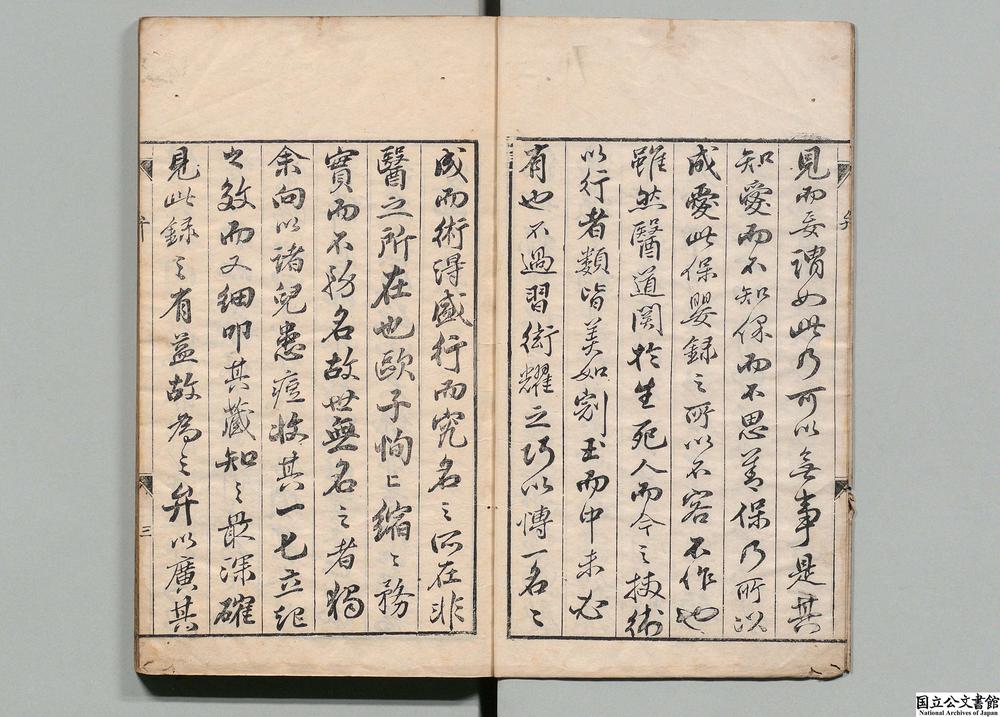 見而妄謂如此乃可以無事是其
知愛而不知保而不思善保乃所以
成愛此保嬰録之所以不容不作也
雖然醫道関於生死人而今之挾術
以行者類皆美如劉玉而中未必
有也不過習衒耀之巧以愽一名之
成而術得盛行而究名之所在非
醫之所在也歐子恂亡縮之務
實而不務名故世無名之者獨
余向以諸兒患痘收其一匕立起
之效而又細叩其藏知之最深確
見此録之有益故為之弁以廣其
弁
三
国立公文書館
National Archives of Japan